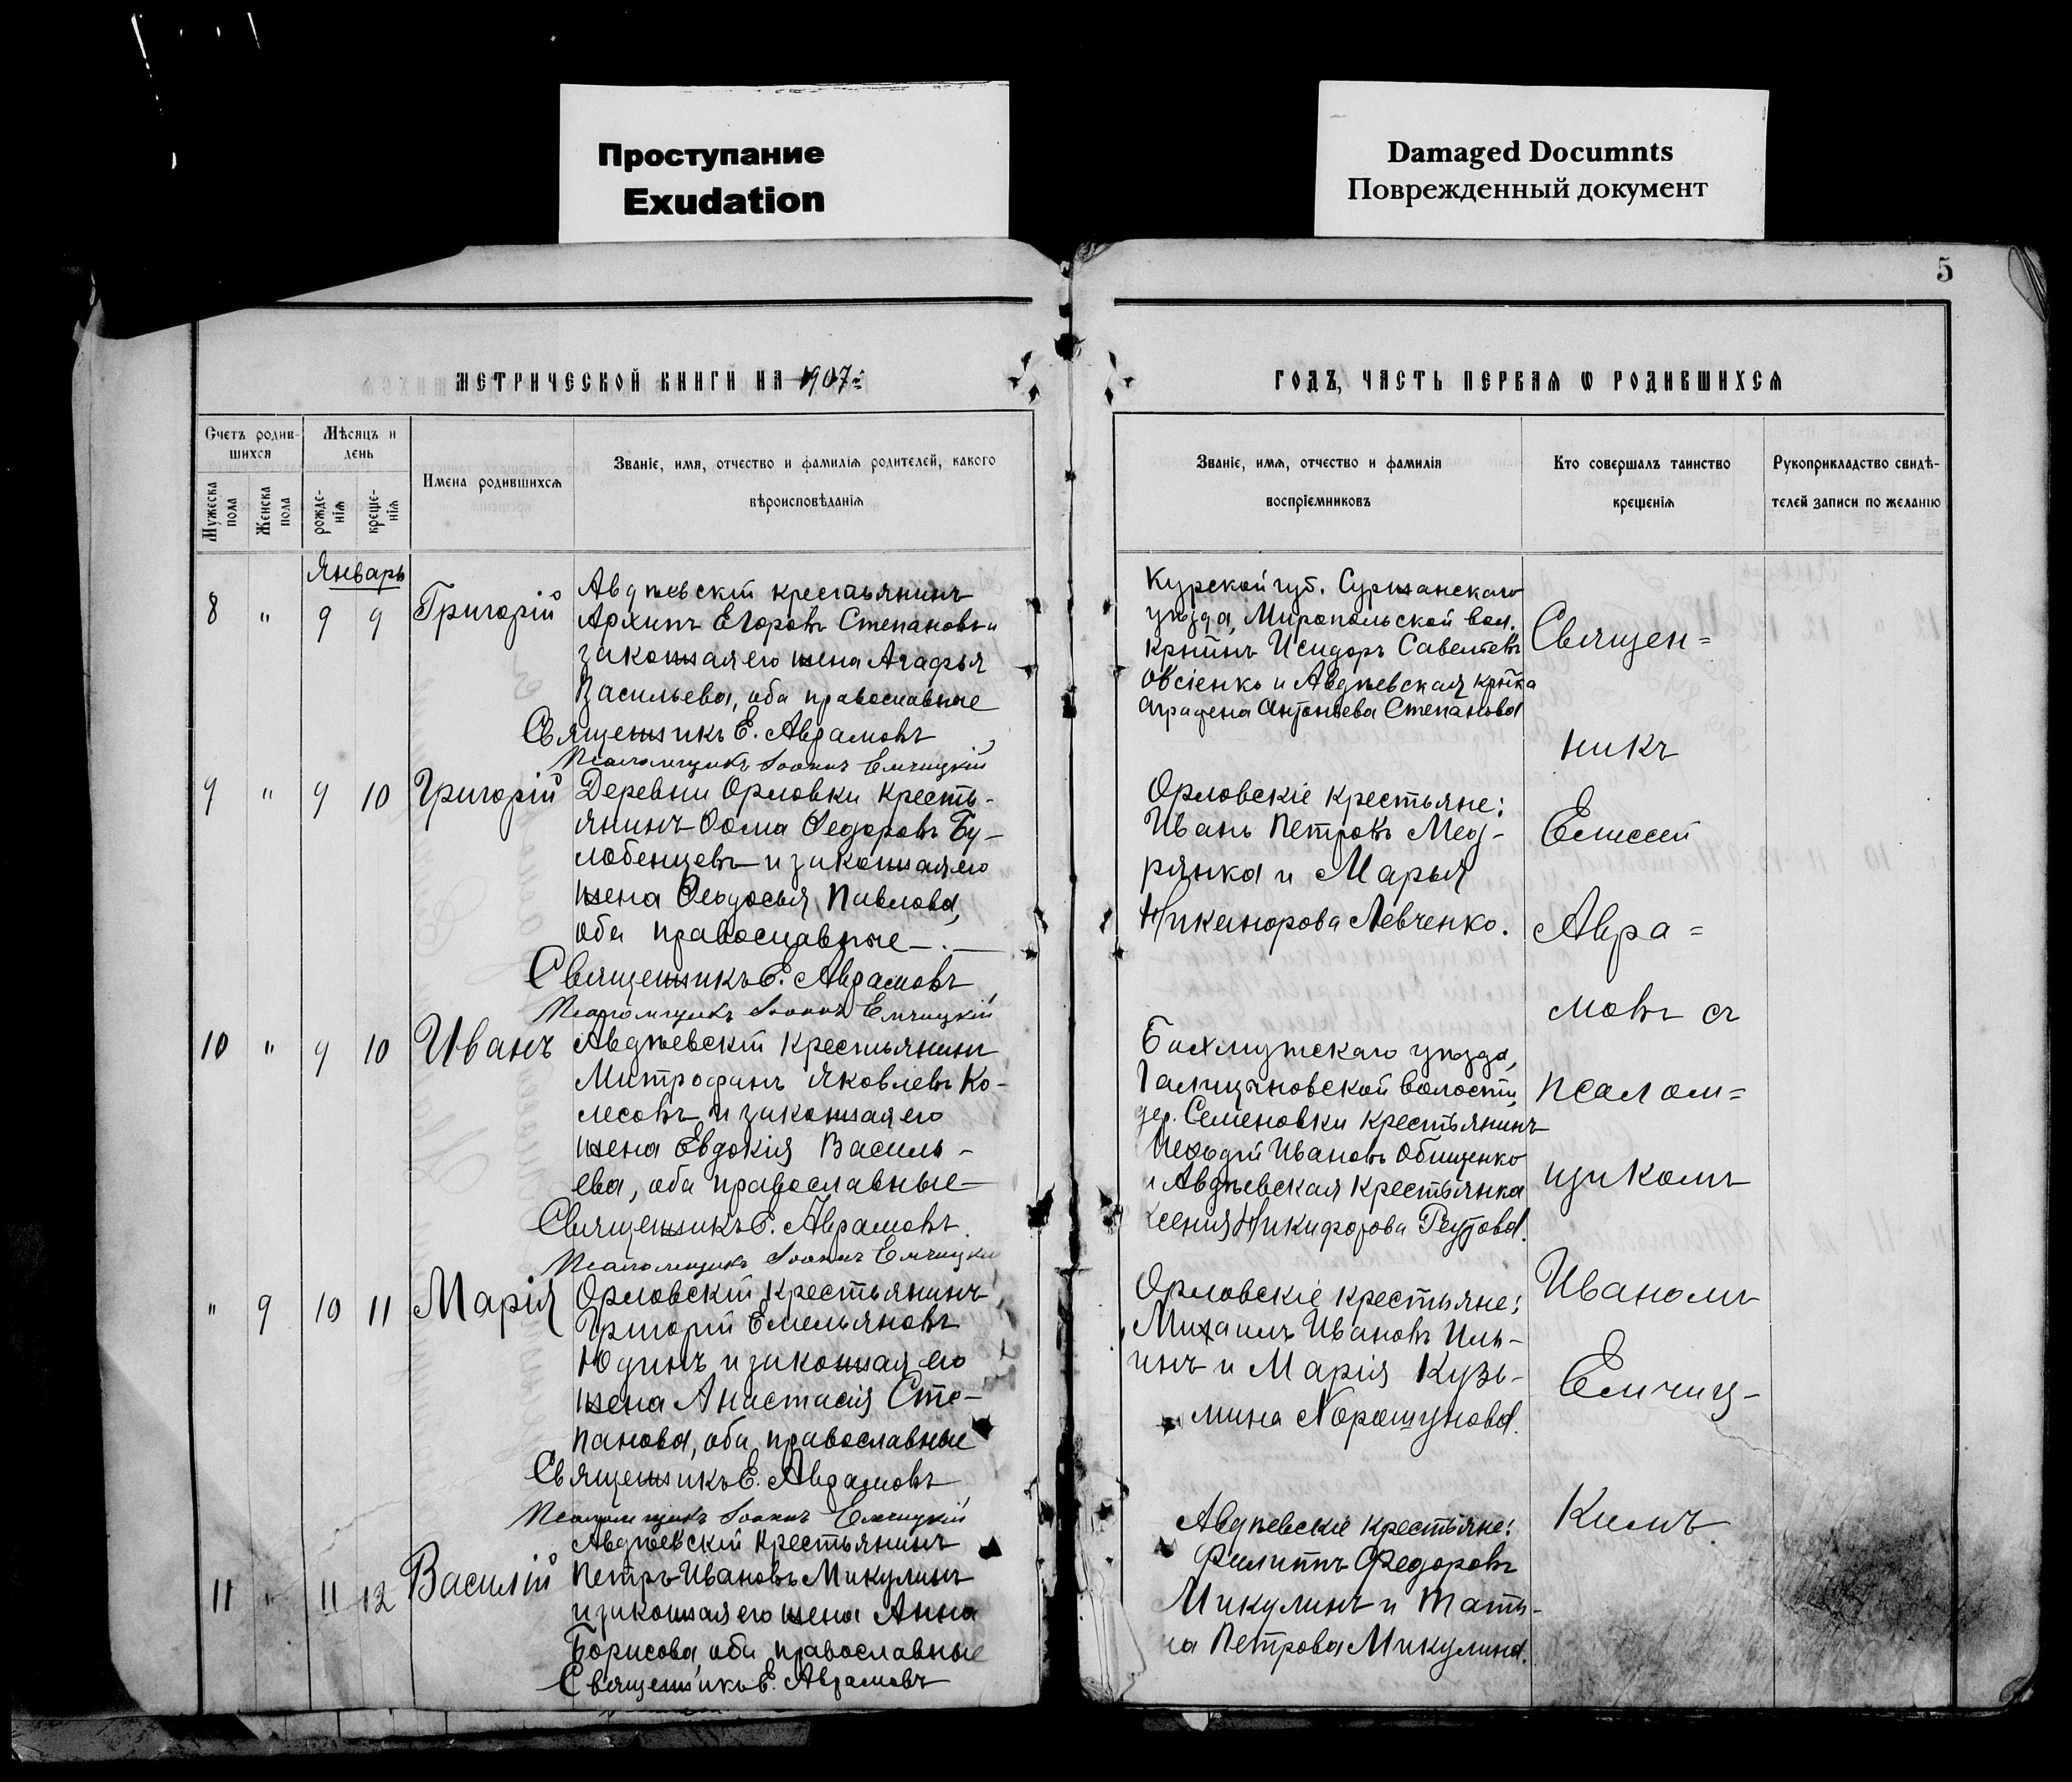 Проступание
Exudation
Damaged Documnts
Поврежденный документ
5
МЕТРИЧЕСКОЙ КНИГИ НА 1907й
ГОДЪ, ЧАСТЬ ПЕРВАЯ О РОДИВШИХСЯ
Счетъ родив-
шихся
Мѣсяцъ и
день
Мужеска
пола
Женска
пола
рожде-
нія
креще-
нія
Имена родившихся
Званіе, имя, отчество и фамилія родителей, какого
вѣроисповѣданія
Званіе, имя, отчество и фамилія
воспріемниковъ
Кто совершалъ таинство
крещенія
Рукоприкладство свидѣ-
телей записи по желанію
Январь
8 " 9 9 Григорій
Авдѣевскій крестьянинъ
Архипъ Егоровъ Степановъ и
законная его жена Агафья
Васильева, оба православные
Священникъ Е. Аврамовъ
Псаломщикъ Іоаннъ Емчицкій
Курской губ. Суржанскаго
уѣзда, Миропольской вол.
кр-нинъ Исидоръ Савельевъ
Овсіенко и Авдѣевская кр-нка
Аграфена Антоньева Степанова
9 " 9 10 Григорій
Деревни Орловки кресть-
янинъ Ѳома Ѳедоровъ Бу-
лобенцевъ и законная его
жена Ѳеодосья Павлова,
оба православные
Священникъ Е. Аврамовъ
Псаломщикъ Іоаннъ Емчицкій
Орловскіе крестьяне:
Иванъ Петровъ Мед-
рянка и Марья
Никанорова Левченко.
10 " 9 10 Иванъ
Авдѣевскій крестьянинъ
Митрофанъ Яковлевъ Ко-
лесовъ и законная его
жена Евдокія Василь-
ева, оба православные
Священникъ Е. Аврамовъ
Псаломщикъ Іоаннъ Емчицкій
Бахмутскаго уѣзда,
Галициновской волости,
дер. Семеновки крестьянинъ
Меѳодій Ивановъ Обищенко
и Авдѣевская крестьянка
Ксенія Никифорова Реутова.
" 9 10 11 Марія
Орловскій крестьянинъ
Григорій Емельяновъ
Юдинъ и законная его
жена Анастасія Сте-
панова, оба православные
Священникъ Е. Аврамовъ
Псаломщикъ Іоаннъ Емчицкій
Орловскіе крестьяне:
Михаилъ Ивановъ Иль-
инъ и Марія Кузь-
мина Хорошунова.
11 " 11 12 Василій
Авдѣевскій крестьянинъ
Петръ Ивановъ Микулинъ
и законная его жена Анна
Борисова, оба православные
Священникъ Е. Аврамовъ
Авдѣевскіе крестьяне:
Филиппъ Ѳедоровъ
Микулинъ и Тать-
на Петрова Микулина.
Священ=
никъ
Елисей
Авра=
мовъ съ
псалом=
щикомъ
Иваномъ
Емчиц-
кимъ